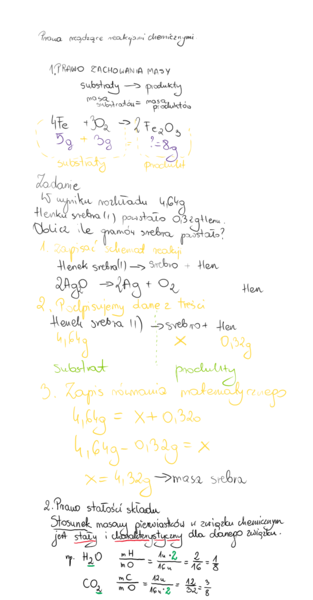 Prawa rządzące reakcjami chemicznymi
1. PRAWO ZACHOWANIA MASY
substraty → produkty
masa substratów = masa produktów
4Fe + 3O₂ → 2Fe₂O₃
5g + 3g = ?=8g
substraty produkt
Zadanie
W wyniku rozkładu 4,64g
tlenku srebra(I) powstało 0,32g tlenu.
Oblicz ile gramów srebra powstało?
1. Zapisać schemat reakcji
tlenek srebra(I) → srebro + tlen
2AgO → 2Ag + O₂ tlen
2. Podpisujemy dane z treści
tlenek srebra (I) → srebro + tlen
4,64g x 0,32g
substrat produkty
3. Zapis równania matematycznego
4,64g = x + 0,32g
4,64g - 0,32g = x
x = 4,32g → masz srebra
2. Prawo stałości składu
Stosunek masowy pierwiastków w związku chemicznym
jest stały i charakterystyczny dla danego związku.
np. H₂O mH/mO = 1u·2/16u = 2/16 = 1/8
CO₂ mC/mO = 12u/16u·2 = 12/32 = 3/8